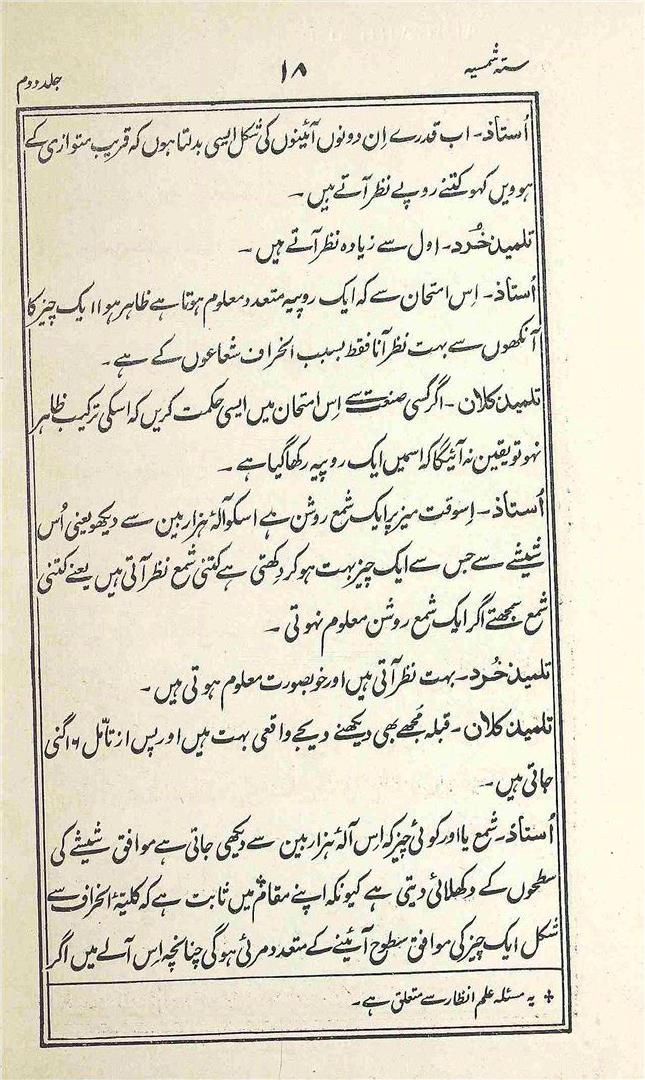 ستہ شمسیہ
۱۸
جلد دوم
اُستاذ۔ اب قدرے اِن دونوں آئینوں کی شکل ایسی بدلتا ہوں کہ قریب متوازی کے
ہوویں کہو کتنے روپے نظر آتے ہیں۔
تلمیذ خُرد۔ اول سے زیادہ نظر آتے ہیں۔
اُستاذ۔ اِس امتحان سے کہ ایک روپیہ متعدد معلوم ہوتا ہے ظاہر ہوا ایک چیز کا
آنکھوں سے بہت نظر آنا فقط بسبب انحراف شعاعوں کے ہے۔
تلمیذ کلان۔ اگر کسی صنعت سے اِس امتحان میں ایسی حکمت کریں کہ اسکی ترکیب ظاہر
نہو تو یقین نہ آئیگا کہ اسمیں ایک روپیہ رکھا گیا ہے۔
اُستاذ۔ اِسوقت میز پر ایک شمع روشن ہے اسکو آلۂ ہزار بین سے دیکھو یعنی اُس
شیشے سے جس سے ایک چیز بہت ہو کر دِکھتی ہے کتنی شمع نظر آتی ہیں یعنے کتنی
شمع سمجھتے اگر ایک شمع روشن معلوم نہوتی۔
تلمیذ خُرد۔ بہت نظر آتی ہیں اور خوبصورت معلوم ہوتی ہیں۔
تلمیذ کلان۔ قبلہ مجھے بھی دیکھنے دیجے واقعی بہت ہیں اور پس از تامّل ۱۶ گنی
جاتی ہیں۔
اُستاذ۔ شمع یا اور کوئی چیز کہ اِس آلۂ ہزار بین سے دیکھی جاتی ہے موافق شیشے کی
سطحوں کے دکھلائی دیتی ہے کیونکہ اپنے مقام + میں ثابت ہے کہ کلیۂ انحراف سے
شکل ایک چیز کی موافق سطوح آئینے کے متعدد مرئی ہوگی چنانچہ اِس آلے میں اگر
+ یہ مسئلہ علم انظار سے متعلق ہے۔